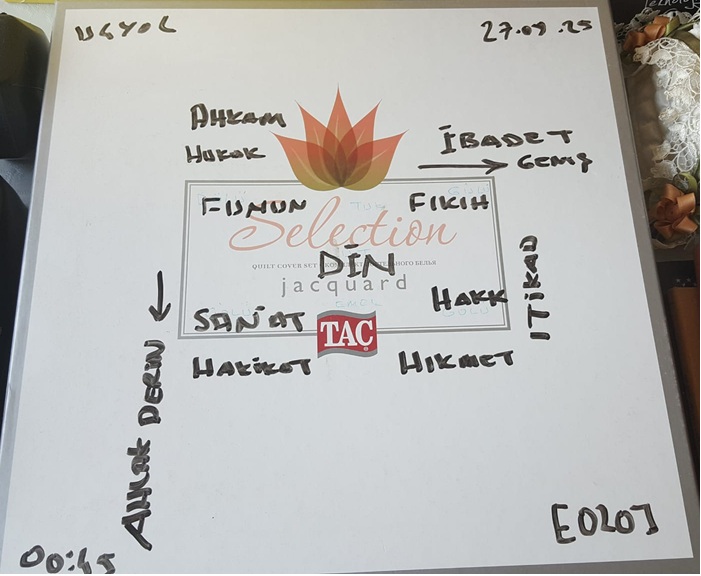 UGYOL
27.09.25
AHKAM
HUKUK
İBADET
GENİŞ
FUNUN
FIKIH
Selection
QUILT COVER SET
DİN
jacquard
HAKK
ITIKAD
SAN'AT
TAC
HAKIKAT
HIKMET
AHLAK DERIN
[0201]
00:45